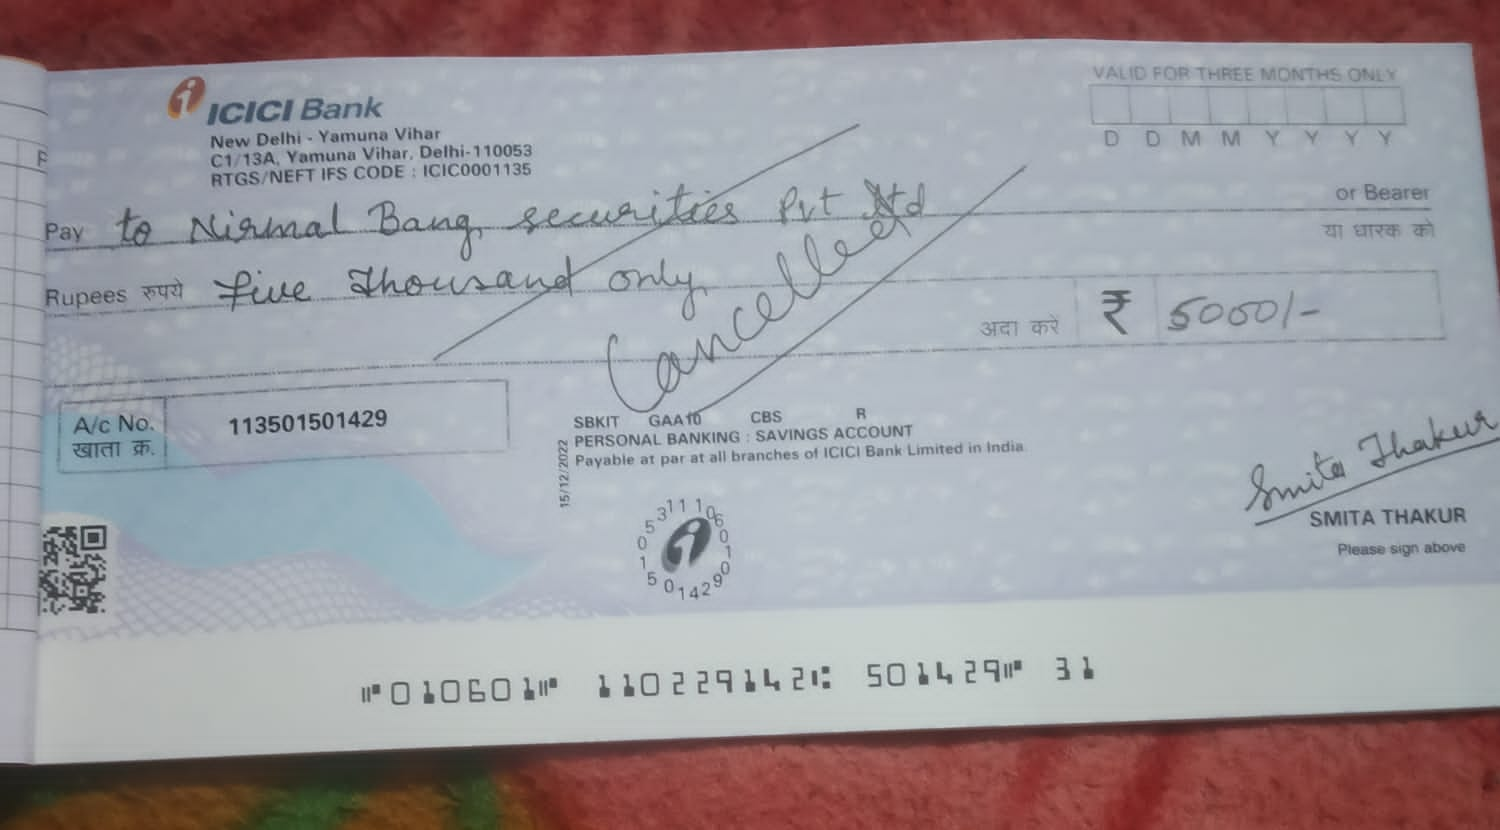 ICICI Bank
New Delhi - Yamuna Vihar
C1/13A, Yamuna Vihar, Delhi-110053
RTGS/NEFT IFS CODE : ICIC0001135
VALID FOR THREE MONTHS ONLY
D D M M Y Y Y Y
Pay to Nirmal Bang securities Pvt Ltd or Bearer
या धारक को
Rupees रुपये five thousand only
Cancelled
अदा करे ₹ 5000/-
A/c No. 113501501429
खाता क्र.
SBKIT GAA10 CBS R
PERSONAL BANKING : SAVINGS ACCOUNT
Payable at par at all branches of ICICI Bank Limited in India
15/12/2022
Smita Thakur
SMITA THAKUR
Please sign above
⑈010601⑈ 110229142⑆ 501429⑈ 31